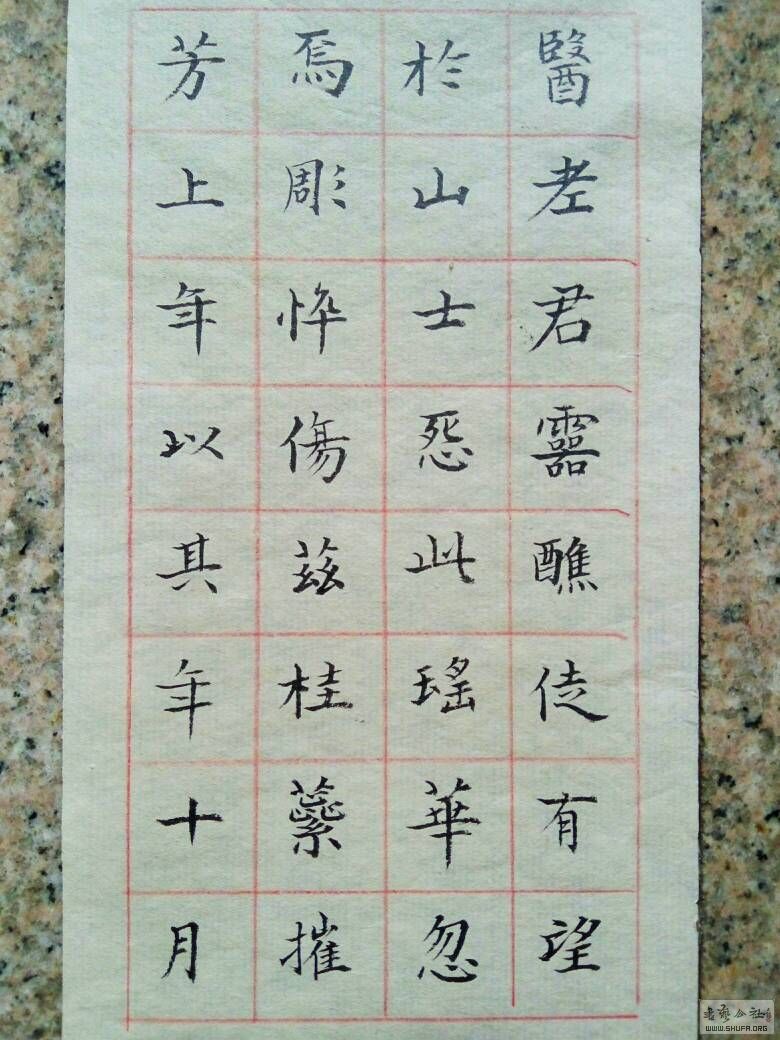 醫老君靈醮徒有望
於山士怨此瑤華忽
焉彫悴傷茲桂蘂摧
芳上年以其年十月
书艺公社
WWW.SHUFA.ORG